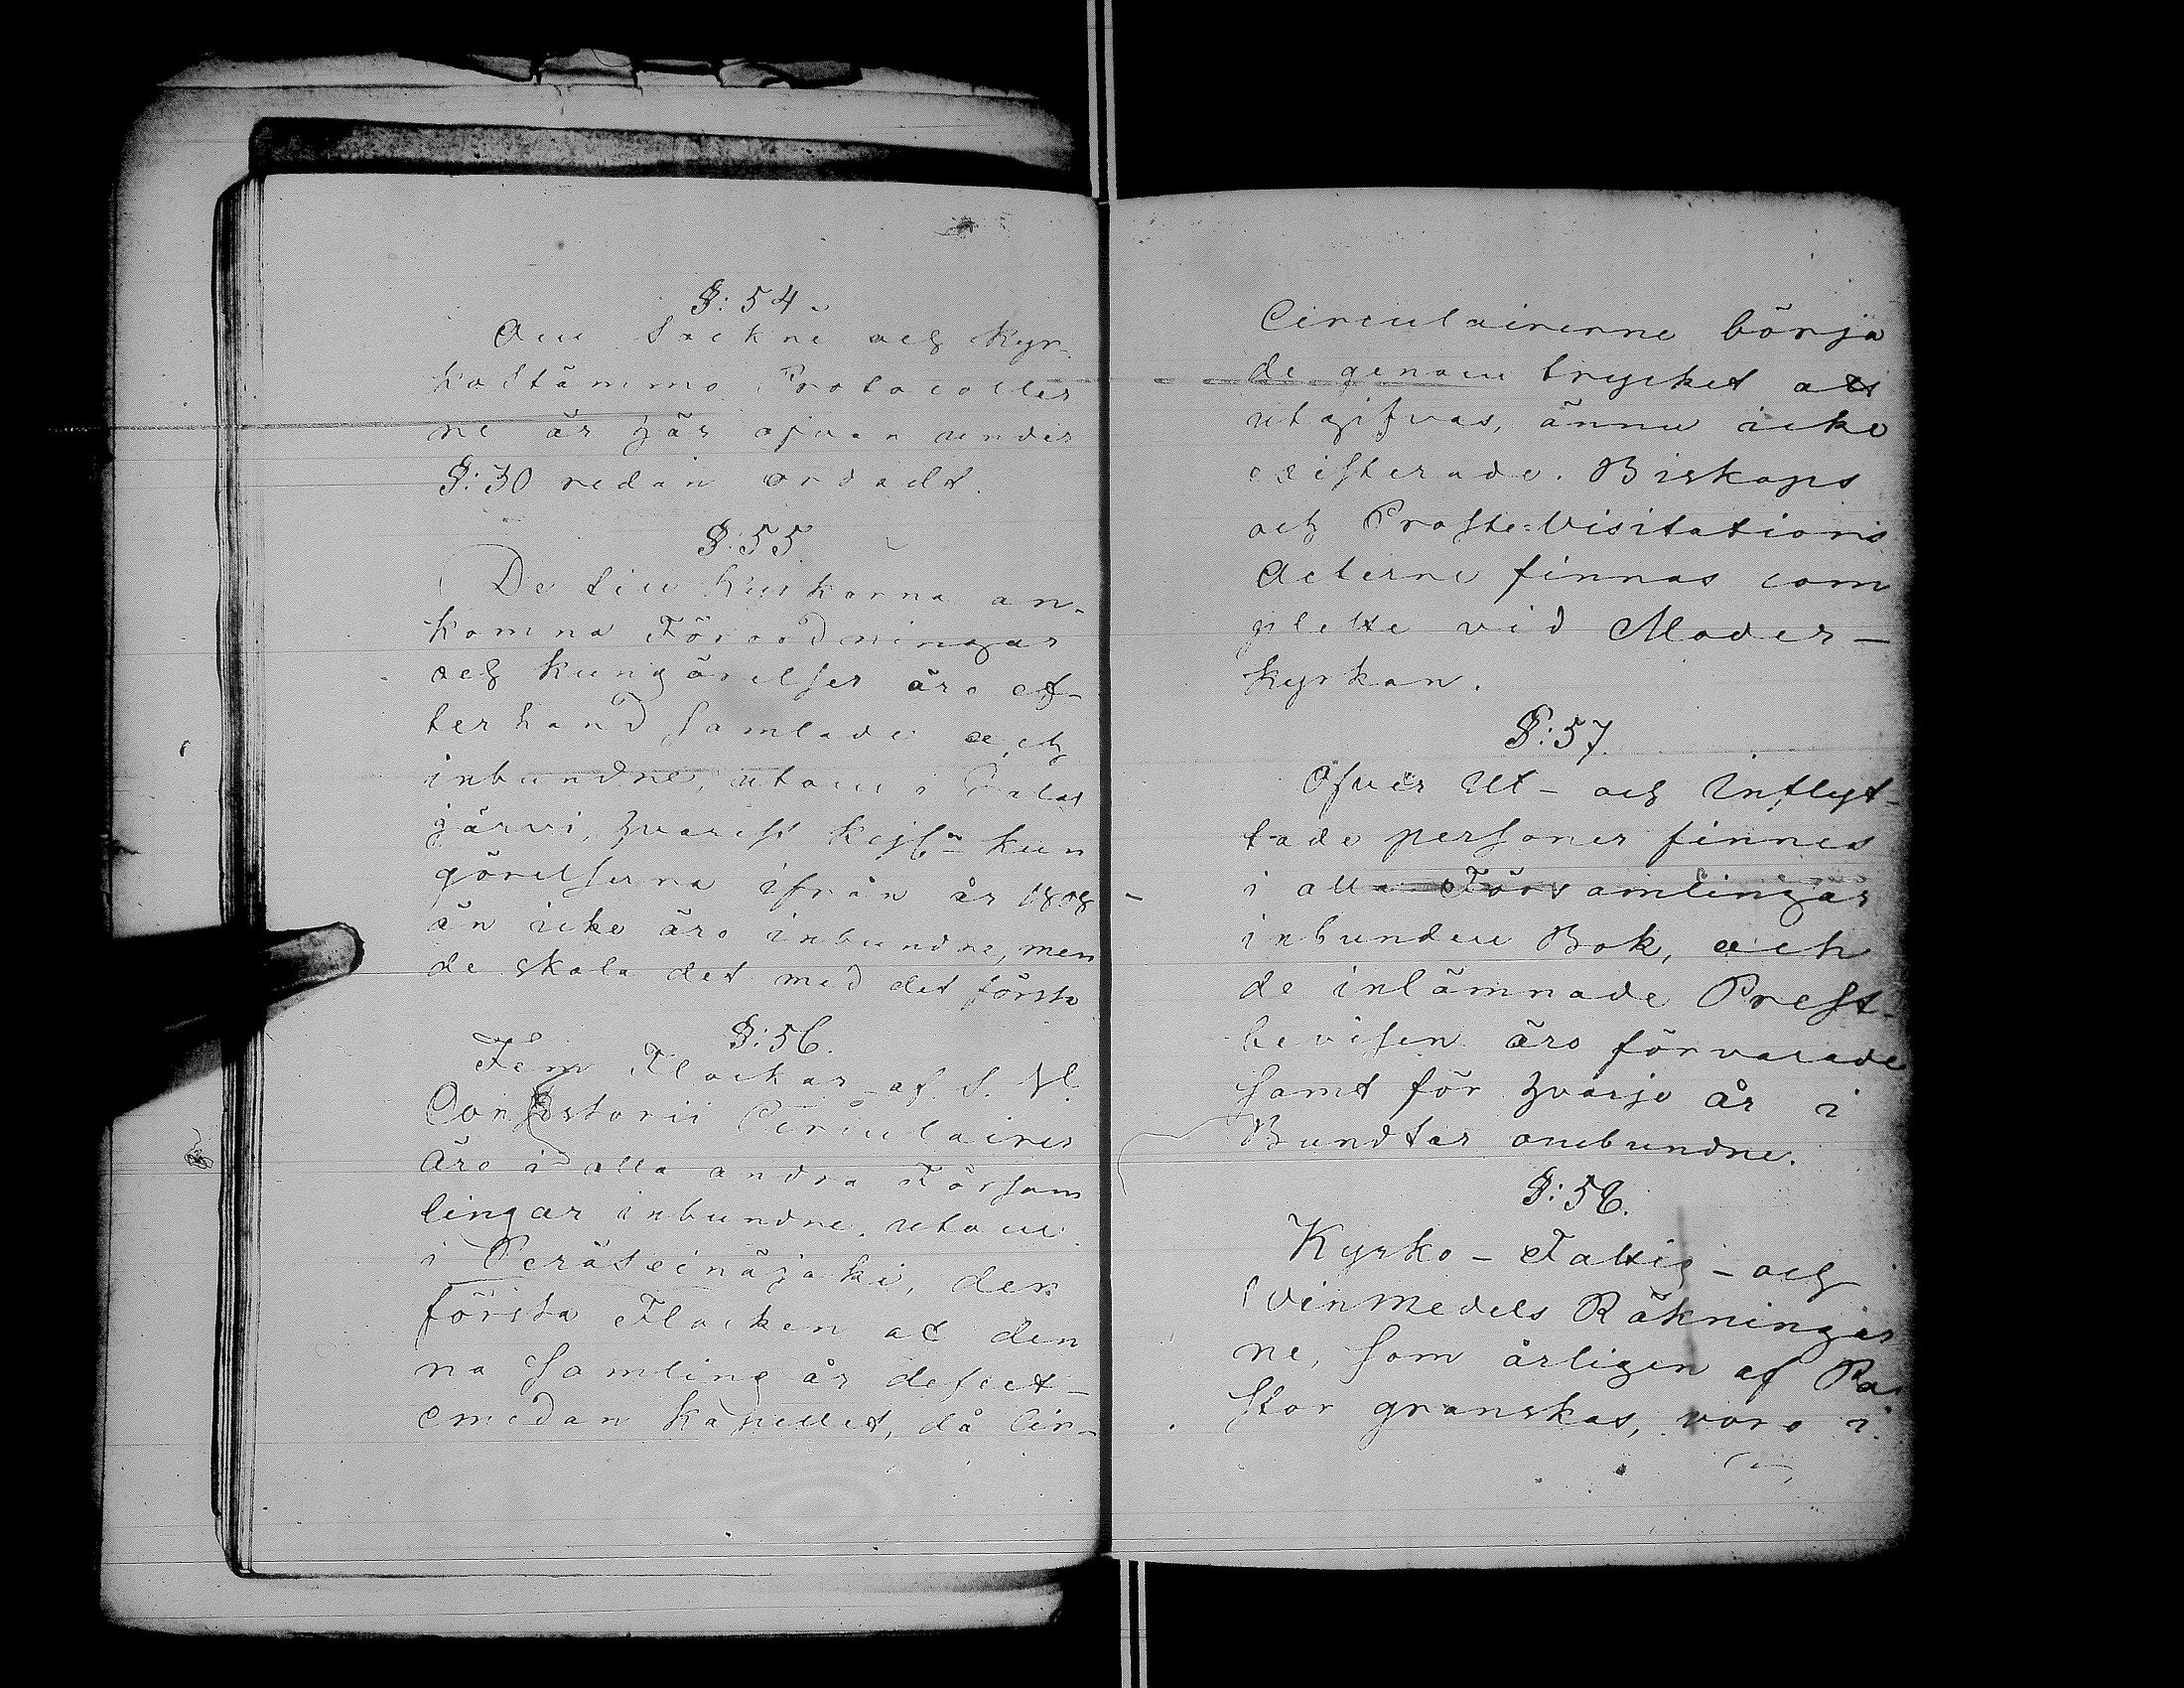 §: 54.
Om Sockne och Kyr-
kostämmo Protocoller
ne är här ofvan under
§: 30 redan ordadt.
§: 55
De till Kyrkorna an-
komna Förordningar
och Kungörelser äro ef-
terhand samlade och
inbundne, utom i Jalas
järvi, hvarest Kejs:a Kun
görelserna ifrån år 1808
än icke äro inbundne, men
de skola det med det första
§: 56.
Fem Flockar af S. H.
Consistorii Circulairer
Äro i alla andra Försam
lingar inbundne, utom
i Peräseinäjoki, der
första Flocken af den
na samling är defect-
emedan Kapellet, då Cir-
Circulairerne börja
de genom trycket att
utgifvas, ännu icke
existerade. Biskops
och Proste-Visitations
Acterne finnas com
plette vid Moder-
kyrkan.
§: 57.
Öfver Ut- och Inflyt-
tade personer finnes
i alla Församlingar
inbunden Bok, och
de inlämnade Prest-
bevisen äro förvarade
samt för hvarje år i
Bundtar ombundne.
§: 58.
Kyrko- Fattig- och
Vinmedels Räkningar
ne, som årligen af Pa
stor granskas, voro i